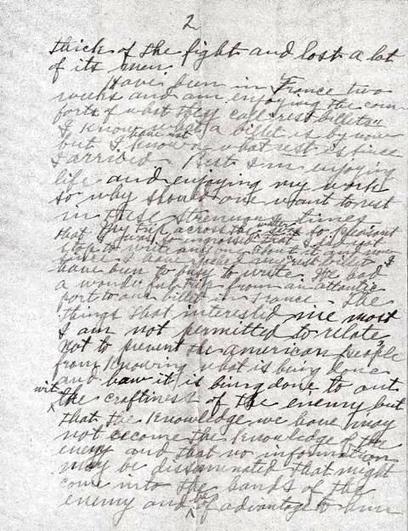 2
thick of the fight and lost a lot
of its men.
Have been in France two
weeks and am enjoying the com-
forts of what they call "rest billets"
I know what a billet is by now
but I know not what rest is since
I arrived. But I'm enjoying
life and enjoying my work
so why should one want to rest
in these strenuous times
that my trip across the water so pleasant
I was so engrossed that I did not
stop to write and
since I have
have been to busy to write. We had
a wonderful trip from an atlantic
port to our billet in France. The
things that interested me most
I am not permitted to relate,
not to prevent the american people
from knowing what is being done
and how it is being done to out
wit the craftiness of the enemy but
that the knowledge we have may
not become the knowledge of the
enemy and that no information
may be disseminated that might
come into the hands of the
enemy and be of advantage to him